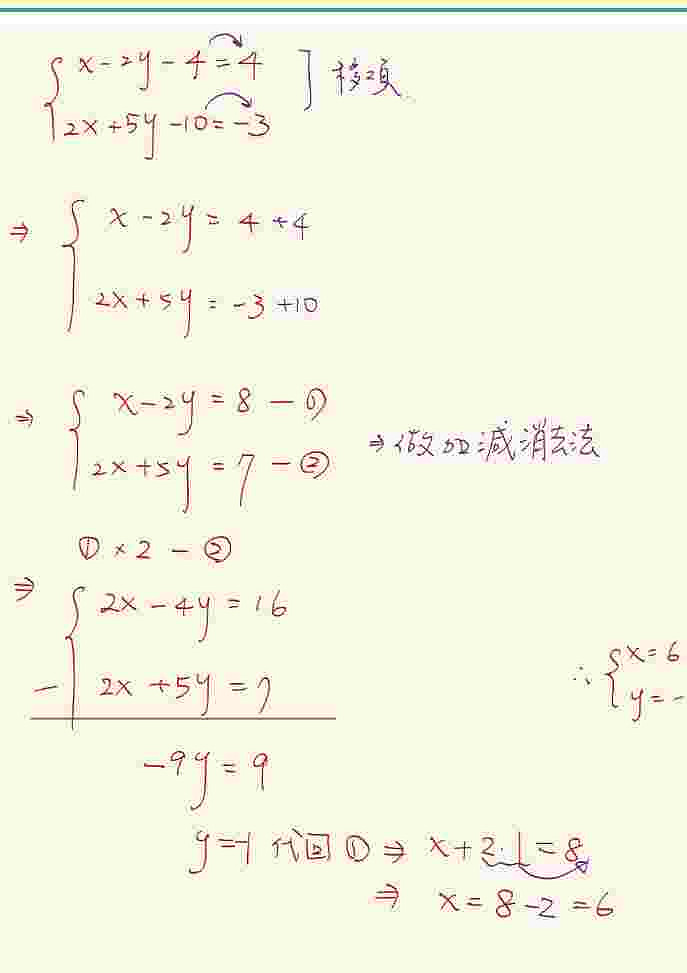 x-2y-4=4 移項
2x+5y-10=-3
⇒ x-2y=4+4
2x+5y=-3+10
⇒ x-2y=8-①
2x+5y=7-② ⇒做加減消去法
①×2-②
⇒ 2x-4y=16
- 2x+5y=7
-9y=9
∴ x=6
y=-
y=-1 代回① ⇒ x+2·1=8
⇒ x=8-2=6